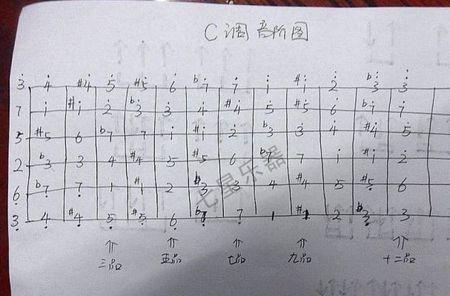 C调音阶图
3 4 #4 5 #5 6 b7 7 i #i 2 b3 3
7 i #i 2 b3 3 4 #4 5 #5 6 b7 7
5 #5 6 b7 7 i #i 2 b3 3 4 #4 5
2 b3 3 4 #4 5 #5 6 b7 7 i #i 2
6 b7 7 1 #1 2 b3 3 4 #4 5 #5 6
3 4 #4 5 #5 6 b7 7 1 #1 2 b3 3
七星乐器
三品 五品 七品 九品 十二品